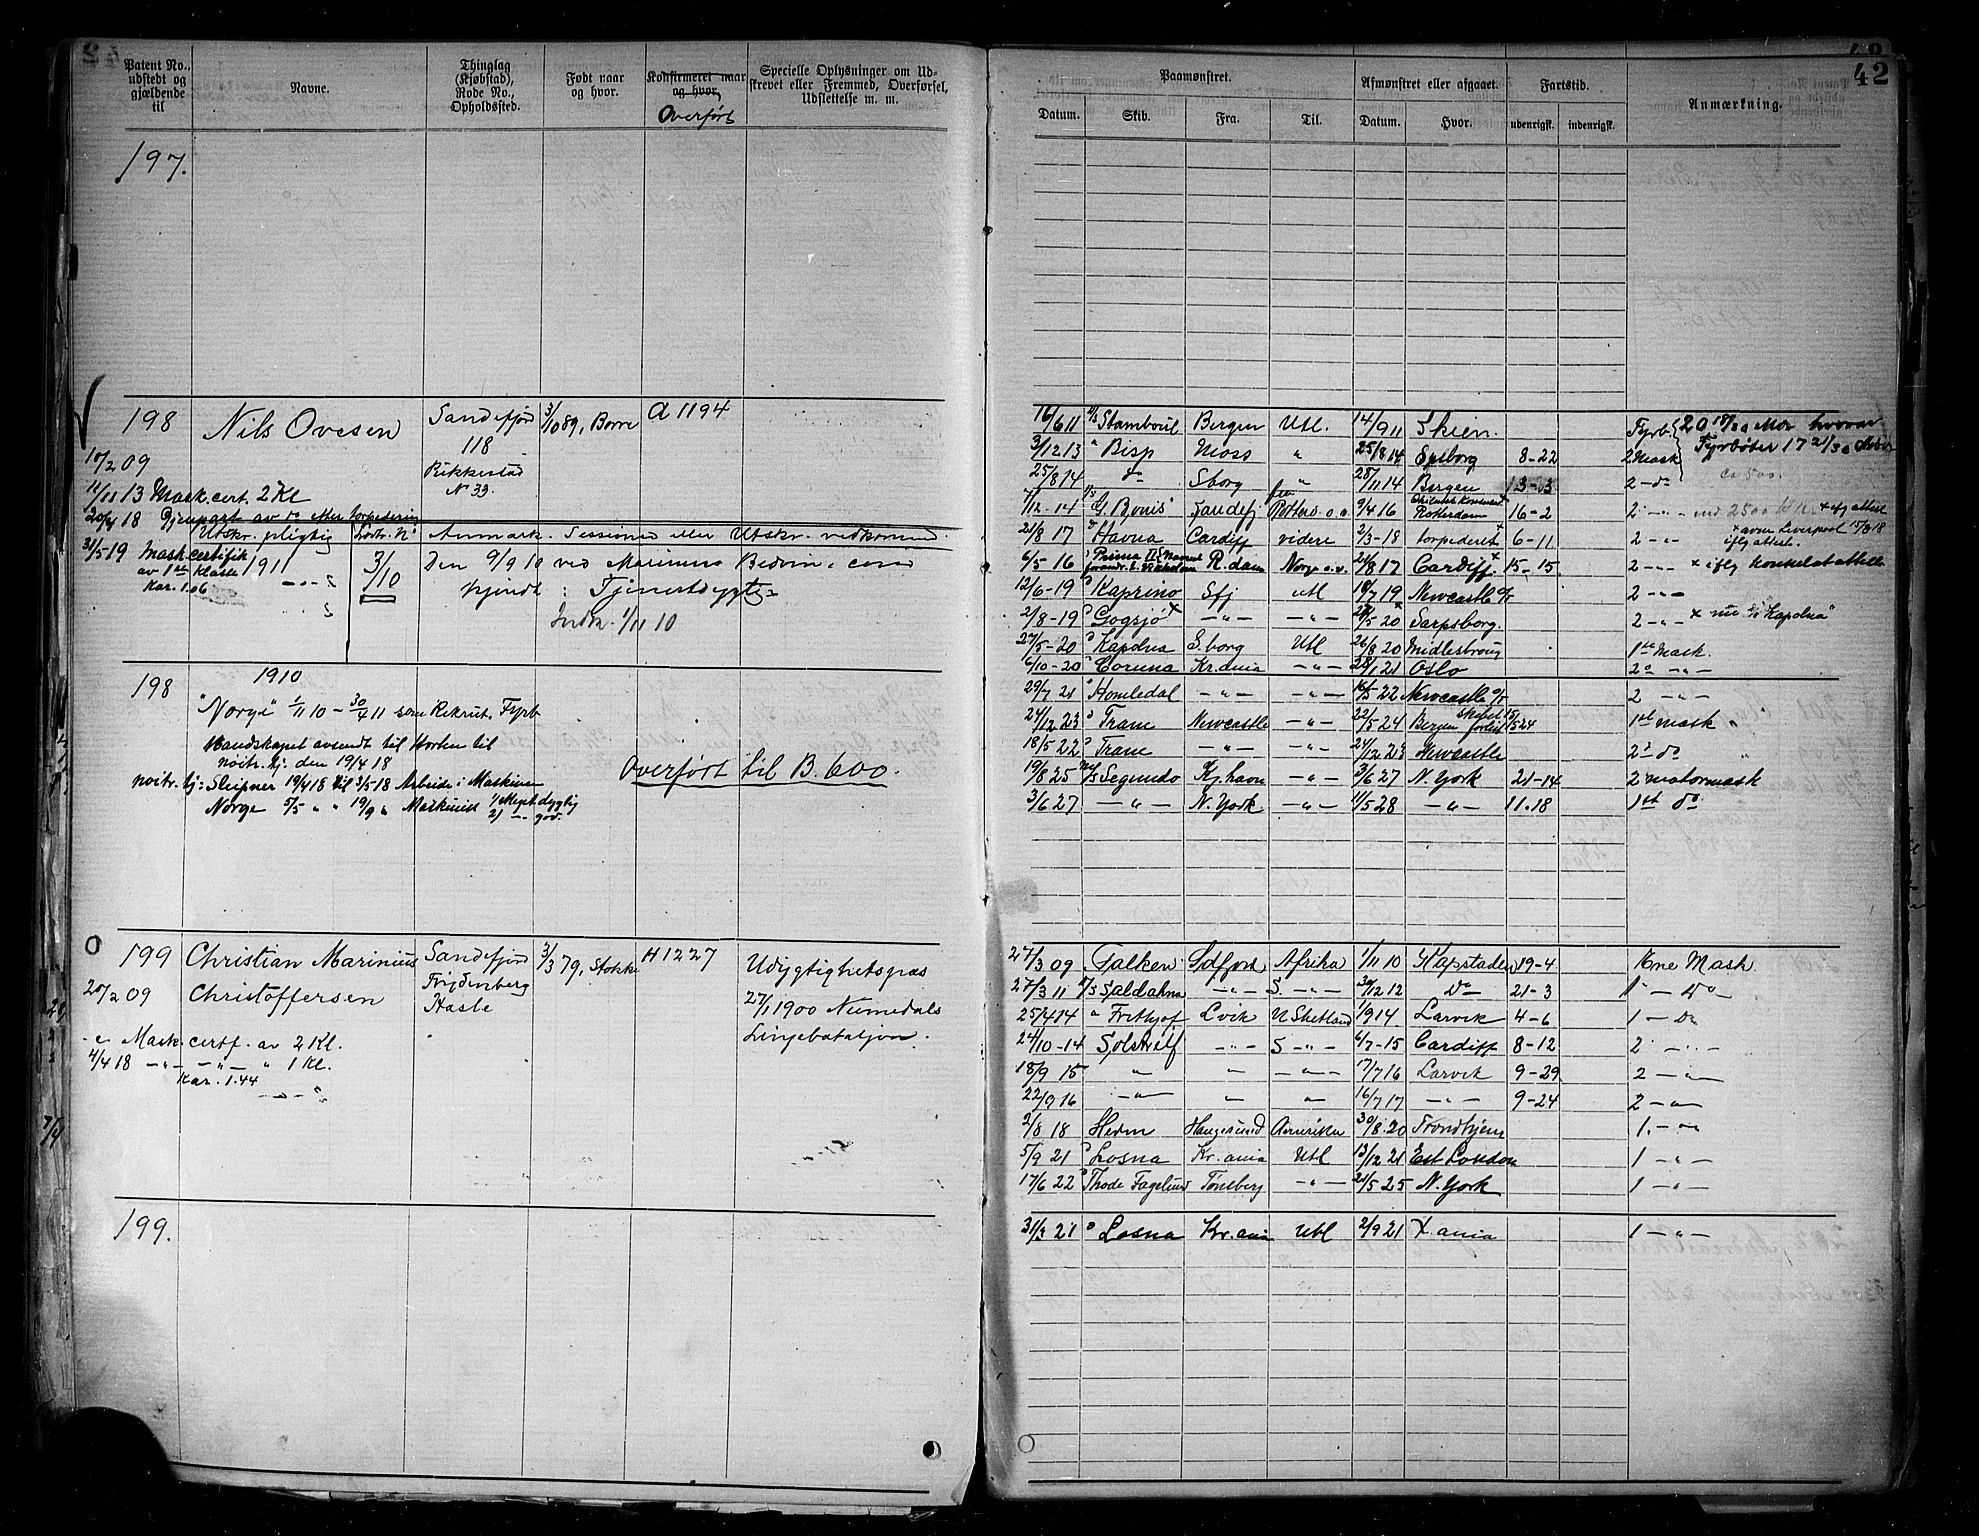 42
Patent No., udstedt og gjældende til
Navne.
Thinglag (Kjøbstad), Rode No., Opholdssted.
Født naar og hvor.
Konfirmeret naar og hvor,
Overført
Specielle Oplysninger om Udskrevet eller Fremmed, Overførsel, Udslettelse m. m.
197.
198 Nils Ovesen Sandefjord 3/10 89, Borre A 1194
118
10/2 09 Bukkestad
N 33.
11/11 13 Mask. cert. 2 Kl
20/4 18 Gjenpart av do efter torpedering
Utskr. pligtig Lodtr. N: Anmærk. Sessionen eller Utskr. vedkommd.
31/5 19 Mask. certifik 1911 3/10 Den 9/9 18 ved Marinens Bedøm.
av 1ste klasse
kjendt: Tjenestdygtig
Kar. 1.06
Indk. 1/11 10
198 1910
"Norge" 1/11 10 - 30/4 11 som Rekrut, Fyrb
Mandskapet avsendt til Horten til
nøitr. tj. den 19/4 18
nøitr. tj: Sleipner 19/4 18 til 3/5 18 Arbeide i Maskinen
Norge 5/5 " " 19/9 " Maskinist 1/ Meget dygtig
2/ -"- god.
Overført til B. 600.
199 Christian Marinius Sandefjord 3/3 79, Stokke H 1227 Udygtighetspas
Frydenberg
20/2 09 Christoffersen Hasle 27/1 1900 Numedals
Linjebataljon.
Mask. certf. av 2 Kl.
4/4 18 -"- -"- " 1 Kl.
Kar. 1.44
199.
Paamønstret. Afmønstret eller afgaaet. Fartstid. Anmærkning.
Datum. Skib. Fra. Til. Datum. Hvor. udenrigsk. indenrigsk.
16/6 11 Stamboul Bergen Utl. 14/9 11 Skien. Fyrb.
3/12 13 " Bisp Moss " 25/8 14 Spsborg 8-22 2 Mask
25/8 14 do Sborg " 28/11 14 Bergen 13-03 2 -do
7/12-14 Sandefj Rotterd. o.a. 9/4 16 Rotterdam 16-2 2 -"-
21/8 17 Havna Cardiff videre 2/3-18 torpederet x 6-11 2 -"- iflg attest.
6/5-16 R.dam Norge o.v. 21/8 17 Cardiff. 15-15. 2 -"- x iflg konsulatattest
12/6-19 Kaprino Sfj utl 10/7 19 Newcastle o/T 2 -"-
2/8-19 Gogsjø x -"- -"- 5 20 Sarpsborg. 2 -"- x nu "Kapdua"
27/5-20 Kapdua S.borg Utl 26/8 20 Midlesbroug 1ste Mask.
6/10-20 Coruna Kr.ania -"- 28/1 21 Oslo 2 -"-
29/7 21 Homledal -"- -"- 16/5 22 Newcastle o/T 2 -"-
24/12 23 Trane Newcastle -"- 22/5-24 Bergen 1st mask
18/5 22 Trane -"- -"- 24/12 23 Newcastle 2d do
19/8 25 Segundo Kj.havn -"- 3/6 27 N. York 21-14 2 motormask
3/6 27 -"- N. York -"- 11/5 28 -"- 11.18 1st do
27/3 09 Falken Sdfjord Afrika 1/11 10 Kapstaden 19-4 Ene Mask
27/3 11 Saldahna -"- S. -"- 30/12 12 Do 21-3 1 - Do
25/4 14 " Frithjof Lvik N Shetland 1/9 14 Larvik 4-6 1 - Do
24/10-14 -"- S -"- 6/7-15 Cardiff 8-12 2 -"-
18/9 15 " " -"- 17/7 16 Larvik 9-29 2 -"-
22/9 16 -"- " " 16/7 17 -"- 9-24 2 -"-
2/8 18 Hedm Haugesund Amerika 30/8.20 Trondhjem 1.-"-
5/9 21 Losna Kr.ania Utl 13/12 21 Est London 1 -"-
17/6 22 Thode Fagelund Tønsberg -"- 21/5 25 N. York 1 -"-
31/3 21 Losna Kr.ania Utl 2/9 21 X.ania 1 -"-